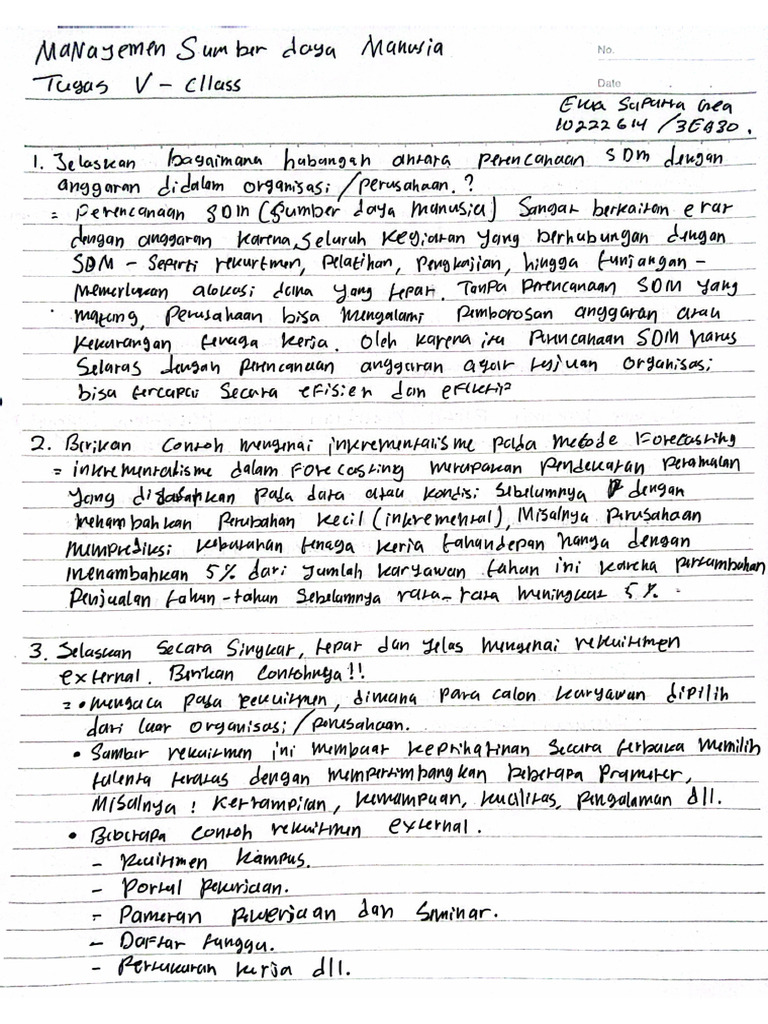 Manayemen Sumber daya Manusia
No.
Tugas V - Cllass
Date
Eka Saputra Gea
10222614 / 3EA30.
1. Jelaskan bagaimana hubangan antara perencanaan SDM dengan
anggaran didalam organisasi / perusahaan. ?
= Perencanaan SDM (Sumber daya Manusia) Sangat berkaitan erat
dengan anggaran karena, seluruh kegiatan yang berhubungan dengan
SDM - Seperti rekurtmen, pelatihan, pengkajian, hingga tunjangan -
Memerlukan alokasi dana yang tepat. Tanpa Perencanaan SDM yang
matang, perusahaan bisa mengalami pemborosan anggaran atau
kekurangan tenaga kerja. Oleh karena itu Perencanaan SDM harus
Selaras dengan perencanaan anggaran agar tujuan organisasi
bisa tercapai secara efisien dan efektif
2. Berikan Contoh mengenai inkrementalisme pada metode Forecasting
= inkrementalisme dalam Forecasting merupakan pendekatan peramalan
yang pada data atau kondisi sebelumnya dengan
menambahkan perubahan kecil (inkremental), Misalnya perusahaan
memprediksi kebutuhan tenaga kerja tahun depan hanya dengan
menambahkan 5% dari jumlah karyawan tahun ini karena pertambahan
Penjualan tahun - tahun sebelumnya rata - rata meningkat 5%.
3. Jelaskan secara singkat, tepat dan jelas mengenai rekruitmen
external. Berikan Contohnya !!
= • mengacu pada rekruitmen, dimana para calon karyawan dipilih
dari luar organisasi / perusahaan.
• Sumber rekuitmen ini membuat keprihatinan secara terbuka memilih
talenta teratas dengan mempertimbangkan beberapa Prameter,
Misalnya : Kertampilan, kemampuan, kualitas, pengalaman dll.
• Beberapa contoh rekuitmen external.
- Rekuitmen Kampus.
- Portal Pekerjaan.
- Pameran Pekerjaan dan Seminar.
- Daftar tunggu.
- Pertukaran kerja dll.